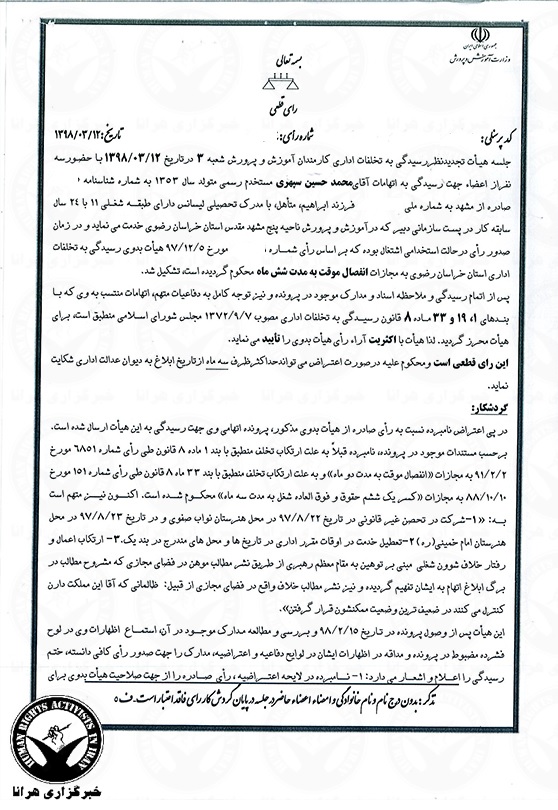 جمهوری اسلامی ایران
وزارت آموزش و پرورش
بسمه تعالی
رای قطعی
کد پرسنلی:
شماره رأی:
تاریخ: ۱۳۹۸/۰۳/۱۲
جلسه هیأت تجدیدنظر رسیدگی به تخلفات اداری کارمندان آموزش و پرورش شعبه ۳ درتاریخ ۱۳۹۸/۰۳/۱۲ با حضورسه
نفراز اعضاء جهت رسیدگی به اتهامات آقای محمد حسین سپهری مستخدم رسمی متولد سال ۱۳۵۳ به شماره شناسنامه
صادره از مشهد به شماره ملی فرزند ابراهیم، متأهل، با مدرک تحصیلی لیسانس دارای طبقه شغلی ۱۱ با ۲۴ سال
سابقه کار در پست سازمانی دبیر که درآموزش و پرورش ناحیه پنج مشهد مقدس استان خراسان رضوی خدمت می نماید و در زمان
صدور رأی درحالت استخدامی اشتغال بوده که بر اساس رأی شماره ، مورخ ۹۷/۱۲/۵ هیأت بدوی رسیدگی به تخلفات
اداری استان خراسان رضوی به مجازات انفصال موقت به مدت شش ماه محکوم گردیده است، تشکیل شد.
پس از اتمام رسیدگی و ملاحظه اسناد و مدارک موجود در پرونده و نیز توجه کامل به دفاعیات متهم، اتهامات منتسب به وی که با
بندهای ۱، ۱۹ و ۳۳ ماده ۸ قانون رسیدگی به تخلفات اداری مصوب ۱۳۷۲/۹/۷ مجلس شورای اسلامی منطبق است، برای
هیأت محرز گردید. لذا هیأت با اکثریت آراء رأی هیأت بدوی را تأیید می نماید.
این رای قطعی است ومحکوم علیه درصورت اعتراض می تواندحداکثرظرف سه ماه ازتاریخ ابلاغ به دیوان عدالت اداری شکایت
نماید.
گردشکار:
در پی اعتراض نامبرده نسبت به رأی صادره از هیأت بدوی مذکور، پرونده اتهامی وی جهت رسیدگی به این هیأت ارسال شده است.
برحسب مستندات موجود در پرونده، نامبرده قبلاً به علت ارتکاب تخلف منطبق با بند ۱ ماده ۸ قانون طی رأی شماره ۶۸۵۱ مورخ
۹۱/۲/۲ به مجازات «انفصال موقت به مدت دو ماه» و به علت ارتکاب تخلف منطبق با بند ۳۳ ماده ۸ قانون طی رأی شماره ۱۵۱ مورخ
۸۸/۱۰/۱۰ به مجازات «کسر یک ششم حقوق و فوق العاده شغل به مدت سه ماه» محکوم شده است. اکنون نیز متهم است
به: «۱-شرکت در تحصن غیر قانونی در تاریخ ۹۷/۸/۲۲ در محل هنرستان نواب صفوی و در تاریخ ۹۷/۸/۲۳ در محل
هنرستان امام خمینی(ره) ۲-تعطیل خدمت در اوقات مقرر اداری در تاریخ ها و محل های مندرج در بند یک. ۳- ارتکاب اعمال و
رفتار خلاف شوون شغلی مبنی بر توهین به مقام معظم رهبری از طریق نشر مطالب موهن در فضای مجازی که مشروح مطالب در
برگ ابلاغ اتهام به ایشان تفهیم گردیده و نیز نشر مطالب خلاف واقع در فضای مجازی از قبیل: ظالمانی که آقا این مملکت دارن
کنترل می کنند در ضعیف ترین وضعیت ممکنشون قرار گرفتن».
این هیأت پس از وصول پرونده در تاریخ ۹۸/۲/۱۵ و بررسی و مطالعه مدارک موجود در آن، استماع اظهارات وی در لوح
فشرده مضبوط در پرونده و مداقه در اظهارات ایشان در لوایح دفاعیه و اعتراضیه، مدارک را جهت صدور رأی کافی دانسته، ختم
رسیدگی را اعلام و اشعار می دارد: ۱- نامبرده در لایحه اعتراضیه، رأی صادره را از جهت صلاحیت هیأت بدوی برای
تذکر: بدون درج نام و نام خانوادگی و امضاء اعضاء حاضر در جلسه در پایان گردش کار رای فاقد اعتبار است. ف ۵
HUMAN RIGHTS ACTIVISTS IN IRAN
خبرگزاری هرانا